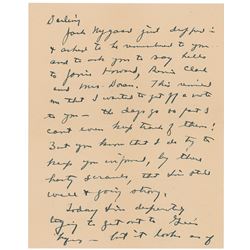 Darling
Josh Nygaard just dropped in
& asked to be remembered to you
and to ask you to say hello
to Jorie Howard, Clark
and Mrs Doan. This reminded
me that I wanted to get off a note
to you — the days go so fast I
can't even keep track of them!
But you know that I do try to
keep you informed, by these
hasty scrawls, that I'm still
well & going strong.
Today I'm desperately
trying to get out to
— but it looks as if